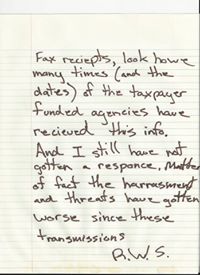 Fax reciepts, look howe
many times (and the
dates) of the taxpayer
funded agencies have
recieved this info.
And I still have not
gotten a responce. Matter
of fact the harrasment
and threats have gotten
worse since these
transmissions
R.W.S.